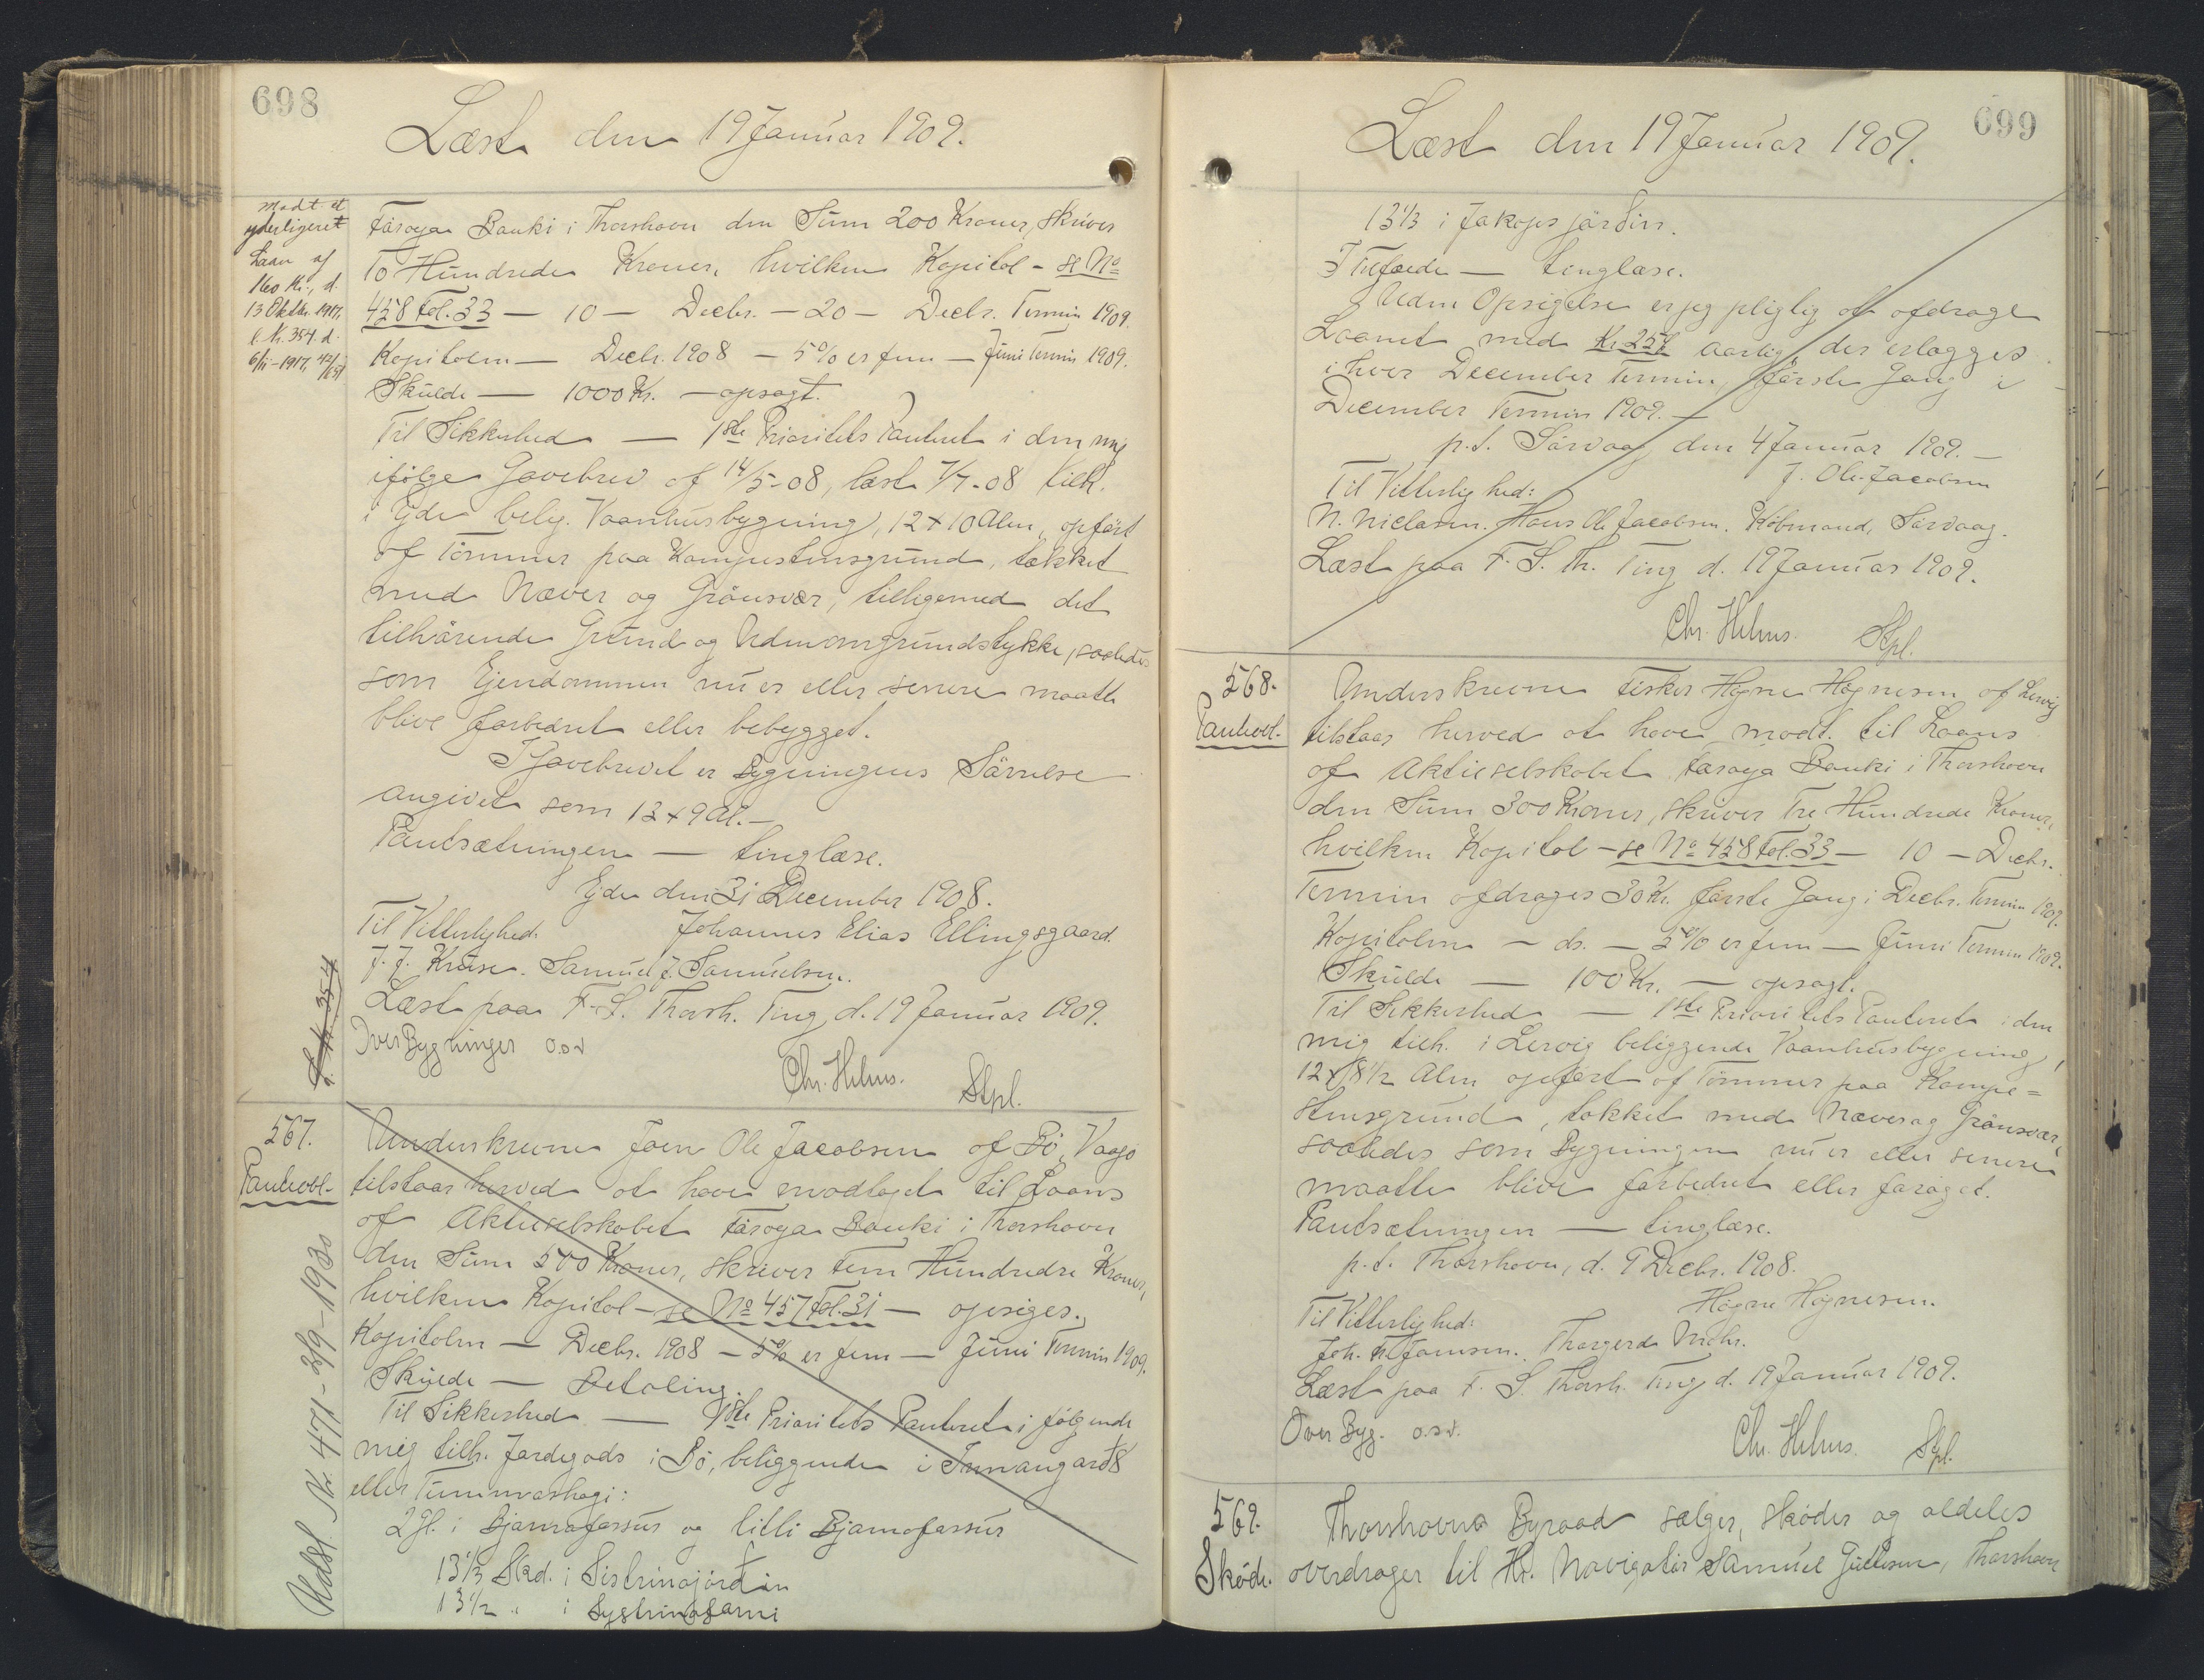 698
Læst den 19 Januar 1909.
Modt et
yderligere
Laan af
160 Kr., d.
13 Oktbr. 1917,
l. N. 354. d.
6/11-1917, 42/651
Føroya Banki i Thorshavn den Sum 200 Kroner, skriver
To Hundrede Kroner, hvilken Kapital - se No
458 Fol. 33 — 10 — Decbr. — 20 — Decbr. Termin 1909.
Kapitalen — Decbr. 1908 — 5% er fem — Juni Termin 1909.
Skulde — 1000 Kr. — opsagt.
Til Sikkerhed — 1ste Prioritets Panteret i den mig
ifølge Gavebrev af 14/5-08, læst 7/7-08 tilh.
i Ejde belig. Vaanhusbygning, 12 x 10 Alen, opført
af Tømmer paa Kampestensgrund, tækket
med Næver og Grønsvær, tilligemed det
tilhørende Grund og Udenomgrundstykke, saaledes
som Ejendommen nu er eller senere maatte
blive forbedret eller bebygget.
I Gavebrevet er Bygningens Størrelse
angivet som 13 x 9 Al. —
Pantsætningen — tinglæse.
Ejde den 31 December 1908.
Til Vitterlighed: Johannes Elias Ellingsgaard.
J. J. Kruse. Samuel J. Samuelsen.
Læst paa F. S. Thorsh. Ting, d. 19 Januar 1909.
Over Bygninger o.s.v
Chr. Helms. Stpl.
354
567.
Panteobl.
Underskrevne Joen Ole Jacobsen af Bø, Vaagø
tilstaar herved at have modtaget til Laans
af Aktieselskabet Føroya Banki i Thorshavn
den Sum 500 Kroner, skriver Fem Hundrede Kroner,
hvilken Kapital - se No 457 Fol. 31 — opsiges.
Kapitalen — Decbr. 1908 — 5% er fem — Juni Termin 1909.
Skulde — Betaling.
Til Sikkerhed — 1ste Prioritets Panteret i følgende
mig tilh. Jordegods i Bø, beliggende i Innangarðs
eller Tummashagi:
2 Gl. i Bjarnafossur og litli Bjarnafossur
13 1/3 Skd. i Sistrinajørðin
13 1/2 " i
Udsl. Nr. 471 - 2/9 - 1930
699
Læst den 19 Januar 1909.
13 1/3 i Jakopsjørðin.
I Tilfælde — tinglæse.
Uden Opsigelse er jeg pligtig at afdrage
Laanet med Kr. 25 aarlig, der erlægges
i hver December Termin, første Gang i
December Termin 1909. —
p.t. Sørvaag den 4 Januar 1909. —
J. Ole Jacobsen
Til Vitterlighed:
N. Nielasen. Hans Ole Jacobsen. Købmand, Sørvaag.
Læst paa F. S. Th. Ting d. 19 Januar 1909.
Chr. Helms. Stpl.
568.
Panteobl.
Underskrevne Fisker Høgne Høgnesen af Lervig
tilstaar herved at have modt. til Laans
af Aktieselskabet Føroya Banki i Thorshavn
den Sum 300 Kroner, skriver Tre Hundrede Kroner,
hvilken Kapital - se No 458 Fol. 33 — 10 — Decbr.
Termin afdrages 30 Kr. første Gang i Decbr. Termin 1909.
Kapitalen — ds. — 5% er fem — Juni Termin 1909.
Skulde — 100 Kr. — opsagt.
Til Sikkerhed — 1ste Prioritets Panteret i den
mig tilh. i Lervig beliggende Vaanhusbygning,
12 x 8 1/2 Alen opført af Tømmer paa Kampe=
stensgrund, tækket med Næver og Grønsvær,
saaledes som Bygningen nu er eller senere
maatte blive forbedret eller forøget.
Pantsætningen — tinglæse.
p.t. Thorshavn, d. 9 Decbr. 1908.
Høgne Høgnesen.
Til Vitterlighed:
Joh. Fr. Joensen. Thorgerd Mohr.
Læst paa F. S. Thorsh. Ting d. 19 Januar 1909.
Over Byg. o.s.v.
Chr. Helms. Stpl.
569.
Skøde.
Thorshavns Byraad sælger, skøder og aldeles
overdrager til Hr. Navigatør Samuel Gullesen, Thorshavn